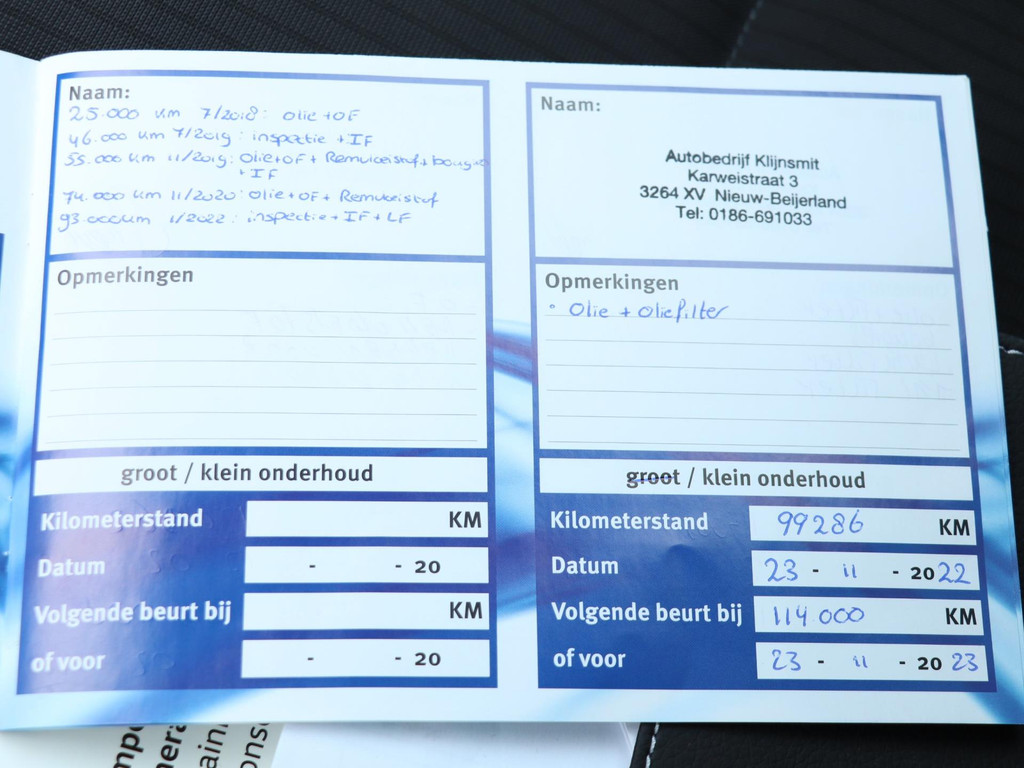 Naam:
25.000 km 7/2018: olie+OF
46.000 km 7/2019: inspectie + IF
55.000 km 11/2019: olie+OF + Remvloeistof+bougie
+ IF
74.000 km 11/2020: olie+OF + Remvloeistof
93.000km 1/2022: inspectie + IF + LF
Opmerkingen
groot / klein onderhoud
Kilometerstand KM
Datum - - 20
Volgende beurt bij KM
of voor - - 20
Naam:
Autobedrijf Klijnsmit
Karweistraat 3
3264 XV Nieuw-Beijerland
Tel: 0186-691033
Opmerkingen
• Olie + Oliefilter
groot / klein onderhoud
Kilometerstand 99286 KM
Datum 23 - 11 - 2022
Volgende beurt bij 114 000 KM
of voor 23 - 11 - 20 23